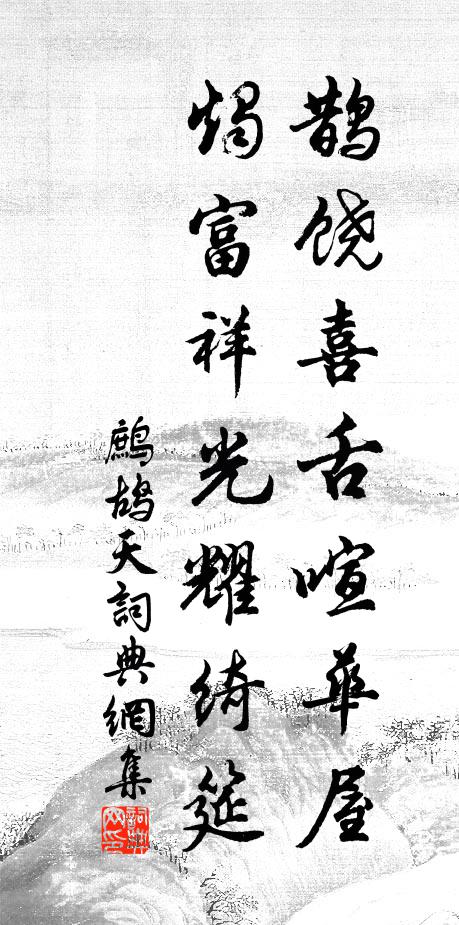 鵲饒喜舌喧華屋
燭富祥光耀綺筵
鷓鴣天詞典網集